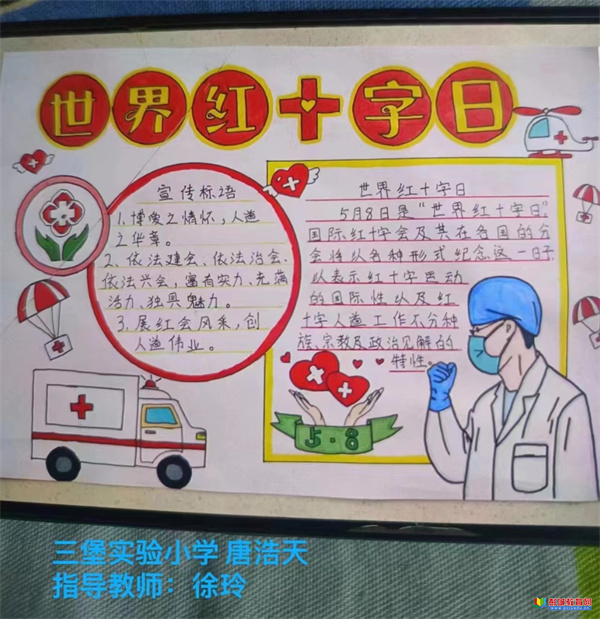 世界红十字日
宣传标语
1、博爱之情怀,人道
之华章。
2、依法建会、依法治会、
依法兴会,富有实力、充满
活力、独具魅力。
3、展红会风采,创
人道伟业。
世界红十字日
5月8日是“世界红十字日”,
国际红十字会及其在各国的分
会将以各种形式纪念这一日子
以表示红十字运动
的国际性以及红
十字人道工作不分种
族、宗教及政治见解的
特性。
5·8
三堡实验小学 唐浩天
指导教师:徐玲
彭城教育网